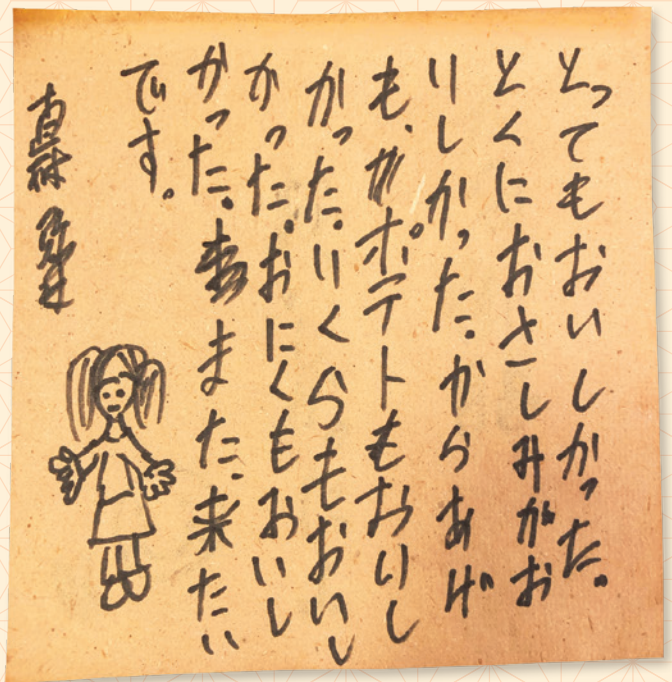 とってもおいしかった。
とくにおさしみがお
いしかった。からあげ
も、ポテトもおいし
かった。いくらもおいし
かった。おにくもおいし
かった。また、来たい
です。